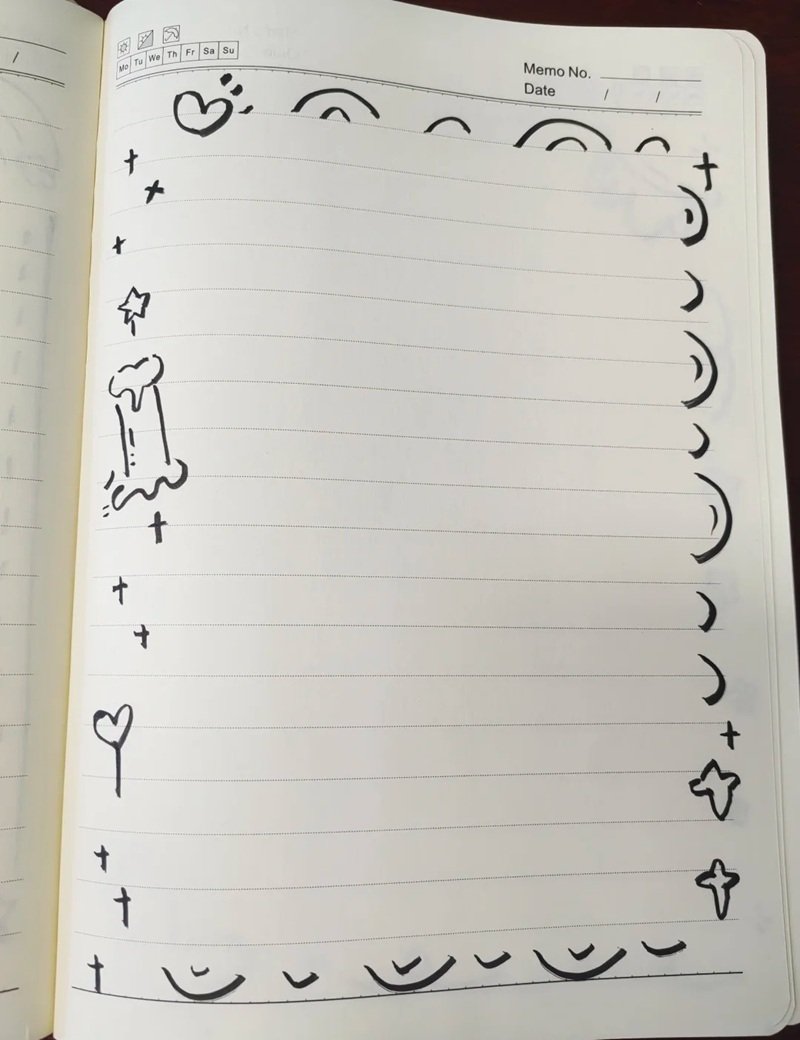 Mo Tu We Th Fr Sa Su
Memo No.
Date / /
/